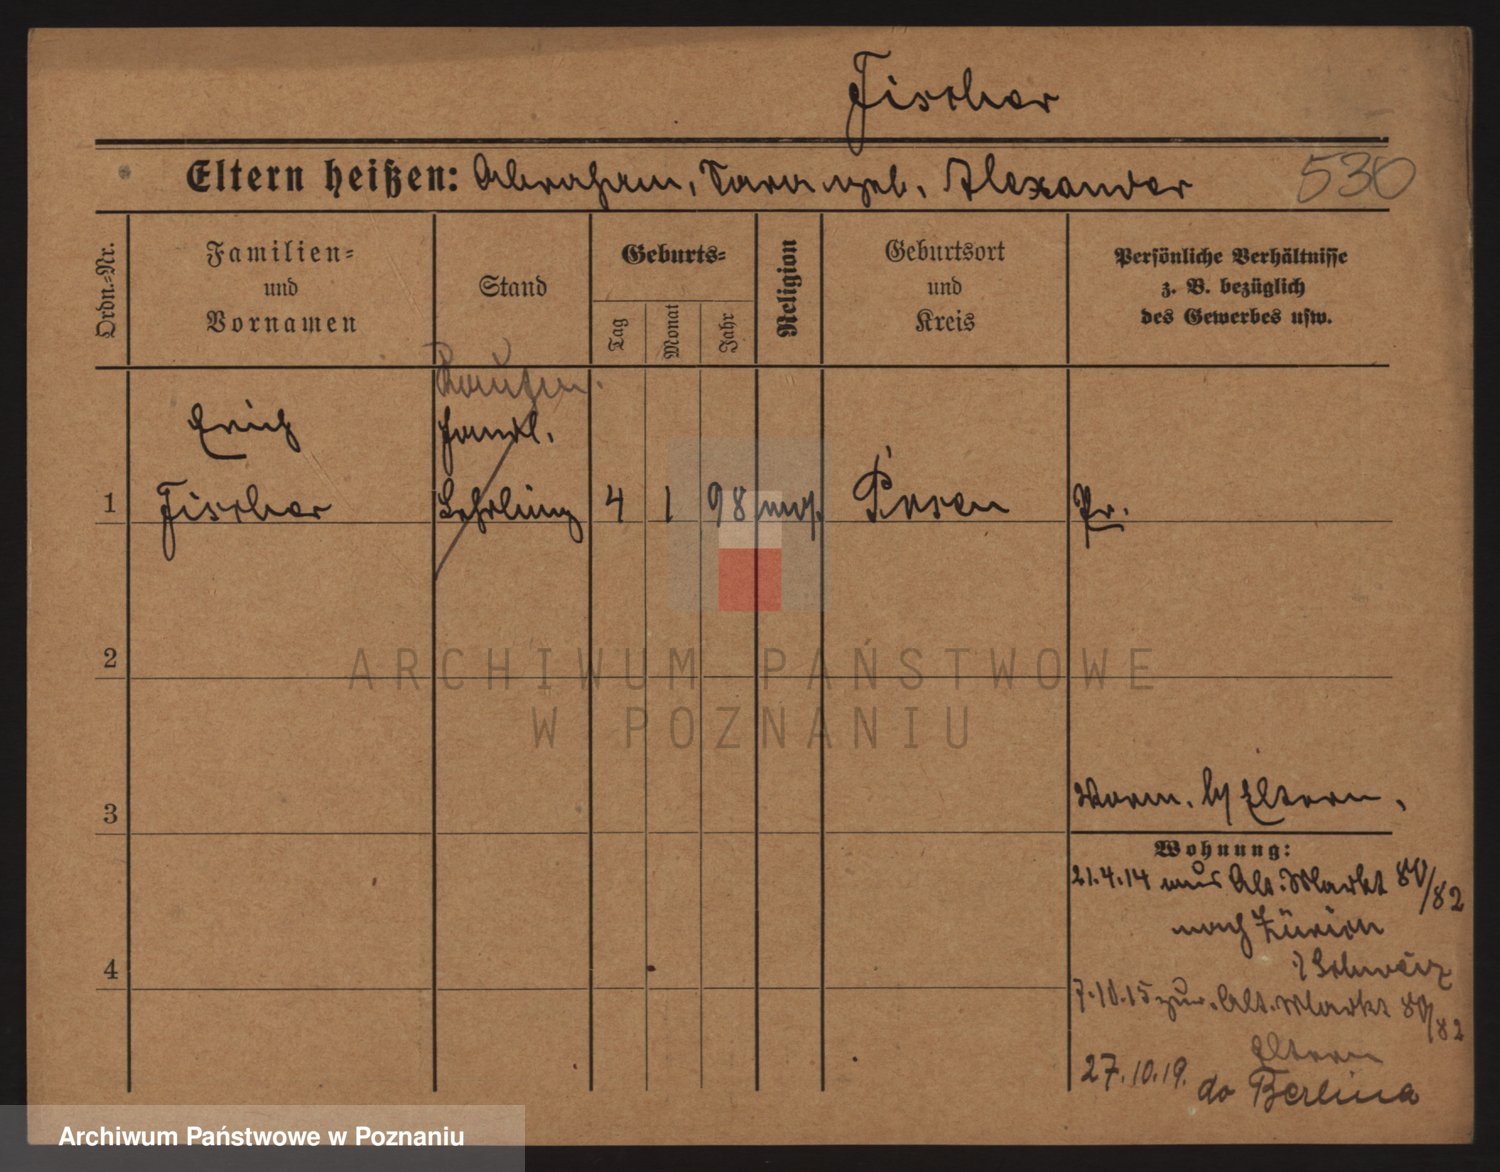 Fischer
Eltern heißen: Abraham, Sara geb. Alexander
530
Ordn.-Nr.
Familien-
und
Vornamen
Stand
Geburts-
Tag
Monat
Jahr
Religion
Geburtsort
und
Kreis
Persönliche Verhältnisse
z. B. bezüglich
des Gewerbes usw.
Kaufm.
Erich
Handl.
1 Fischer Lehrling 4 1 98 mos. Posen Pr.
2
ARCHIWUM PAŃSTWOWE
W POZNANIU
3
Eltern.
Wohnung:
21.4.14 aus Alt. Markt 80/82
nach Zürich
Schweiz
4
7.10.15 zur. Alt. Markt 80/82
Eltern
27.10.19. do Berlina
Archiwum Państwowe w Poznaniu